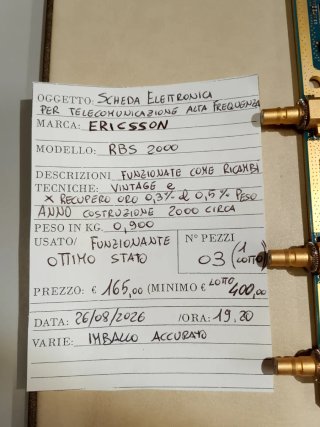 OGGETTO: SCHEDA ELETTRONICA
PER TELECOMUNICAZIONE ALTA FREQUENZA
MARCA: ERICSSON
MODELLO: RBS 2000
DESCRIZIONI FUNZIONATE COME RICAMBI
TECNICHE: VINTAGE e
X RECUPERO ORO 0,3% di 0,5% PESO
ANNO COSTRUZIONE 2000 CIRCA
PESO IN KG. 0,900
USATO/ FUNZIONANTE
OTTIMO STATO
N° PEZZI
03 (1 LOTTO)
PREZZO: € 165,00 (MINIMO € LOTTO 400,00
DATA: 26/08/2026 /ORA: 19.20
VARIE: IMBALLO ACCURATO